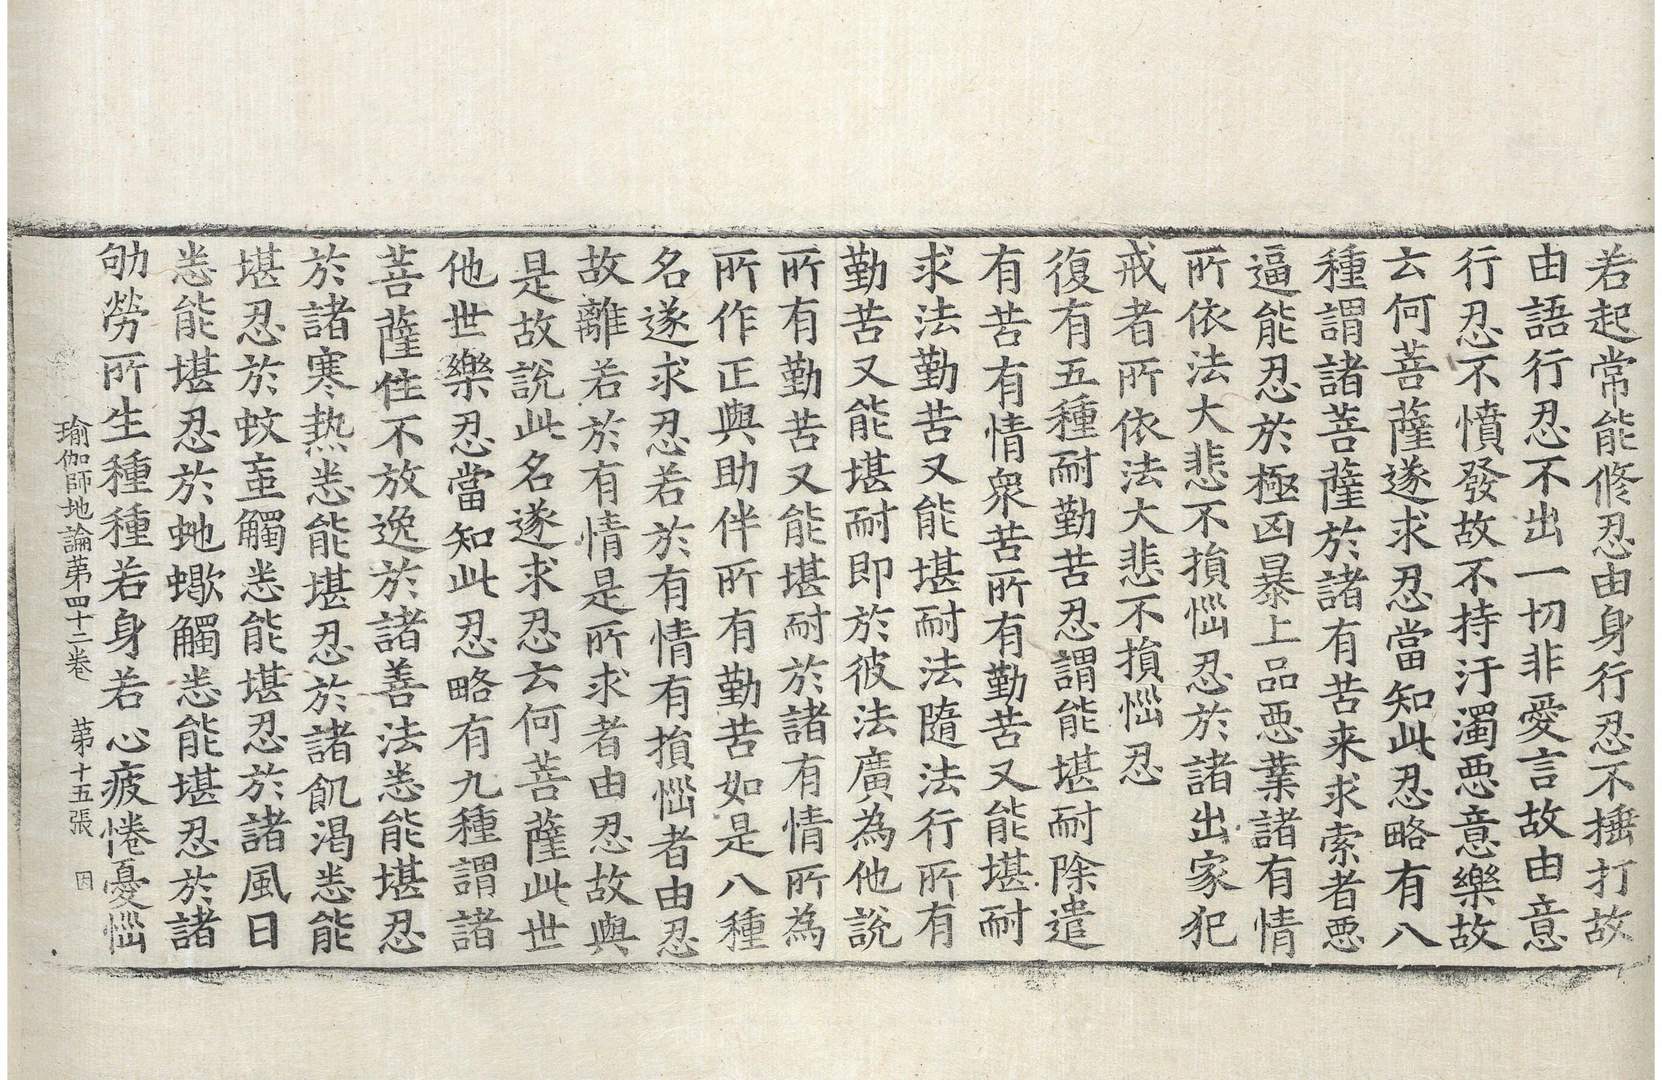 若起常能修忍由身行忍不捶打故
由語行忍不出一切非愛言故由意
行忍不憤發故不持汙濁惡意樂故
云何菩薩遂求忍當知此忍略有八
種謂諸菩薩於諸有苦来求索者惡
逼能忍於極凶暴上品惡業諸有情
所依法大悲不損惱忍於諸出家犯
戒者所依法大悲不損惱忍
復有五種耐勤苦忍謂能堪耐除遣
有苦有情衆苦所有勤苦又能堪耐
求法勤苦又能堪耐法隨法行所有
勤苦又能堪耐即於彼法廣為他說
所有勤苦又能堪耐於諸有情所為
所作正與助伴所有勤苦如是八種
名遂求忍若於有情有損惱者由忍
故離若於有情是所求者由忍故與
是故說此名遂求忍云何菩薩此世
他世樂忍當知此忍略有九種謂諸
菩薩住不放逸於諸善法悉能堪忍
於諸寒热悉能堪忍於諸飢渴悉能
堪忍於蚊䖟觸悉能堪忍於諸風日
悉能堪忍於虵蠍觸悉能堪忍於諸
劬勞所生種種若身若心疲惓憂惱
瑜伽師地論第四十二卷　第十五張　因